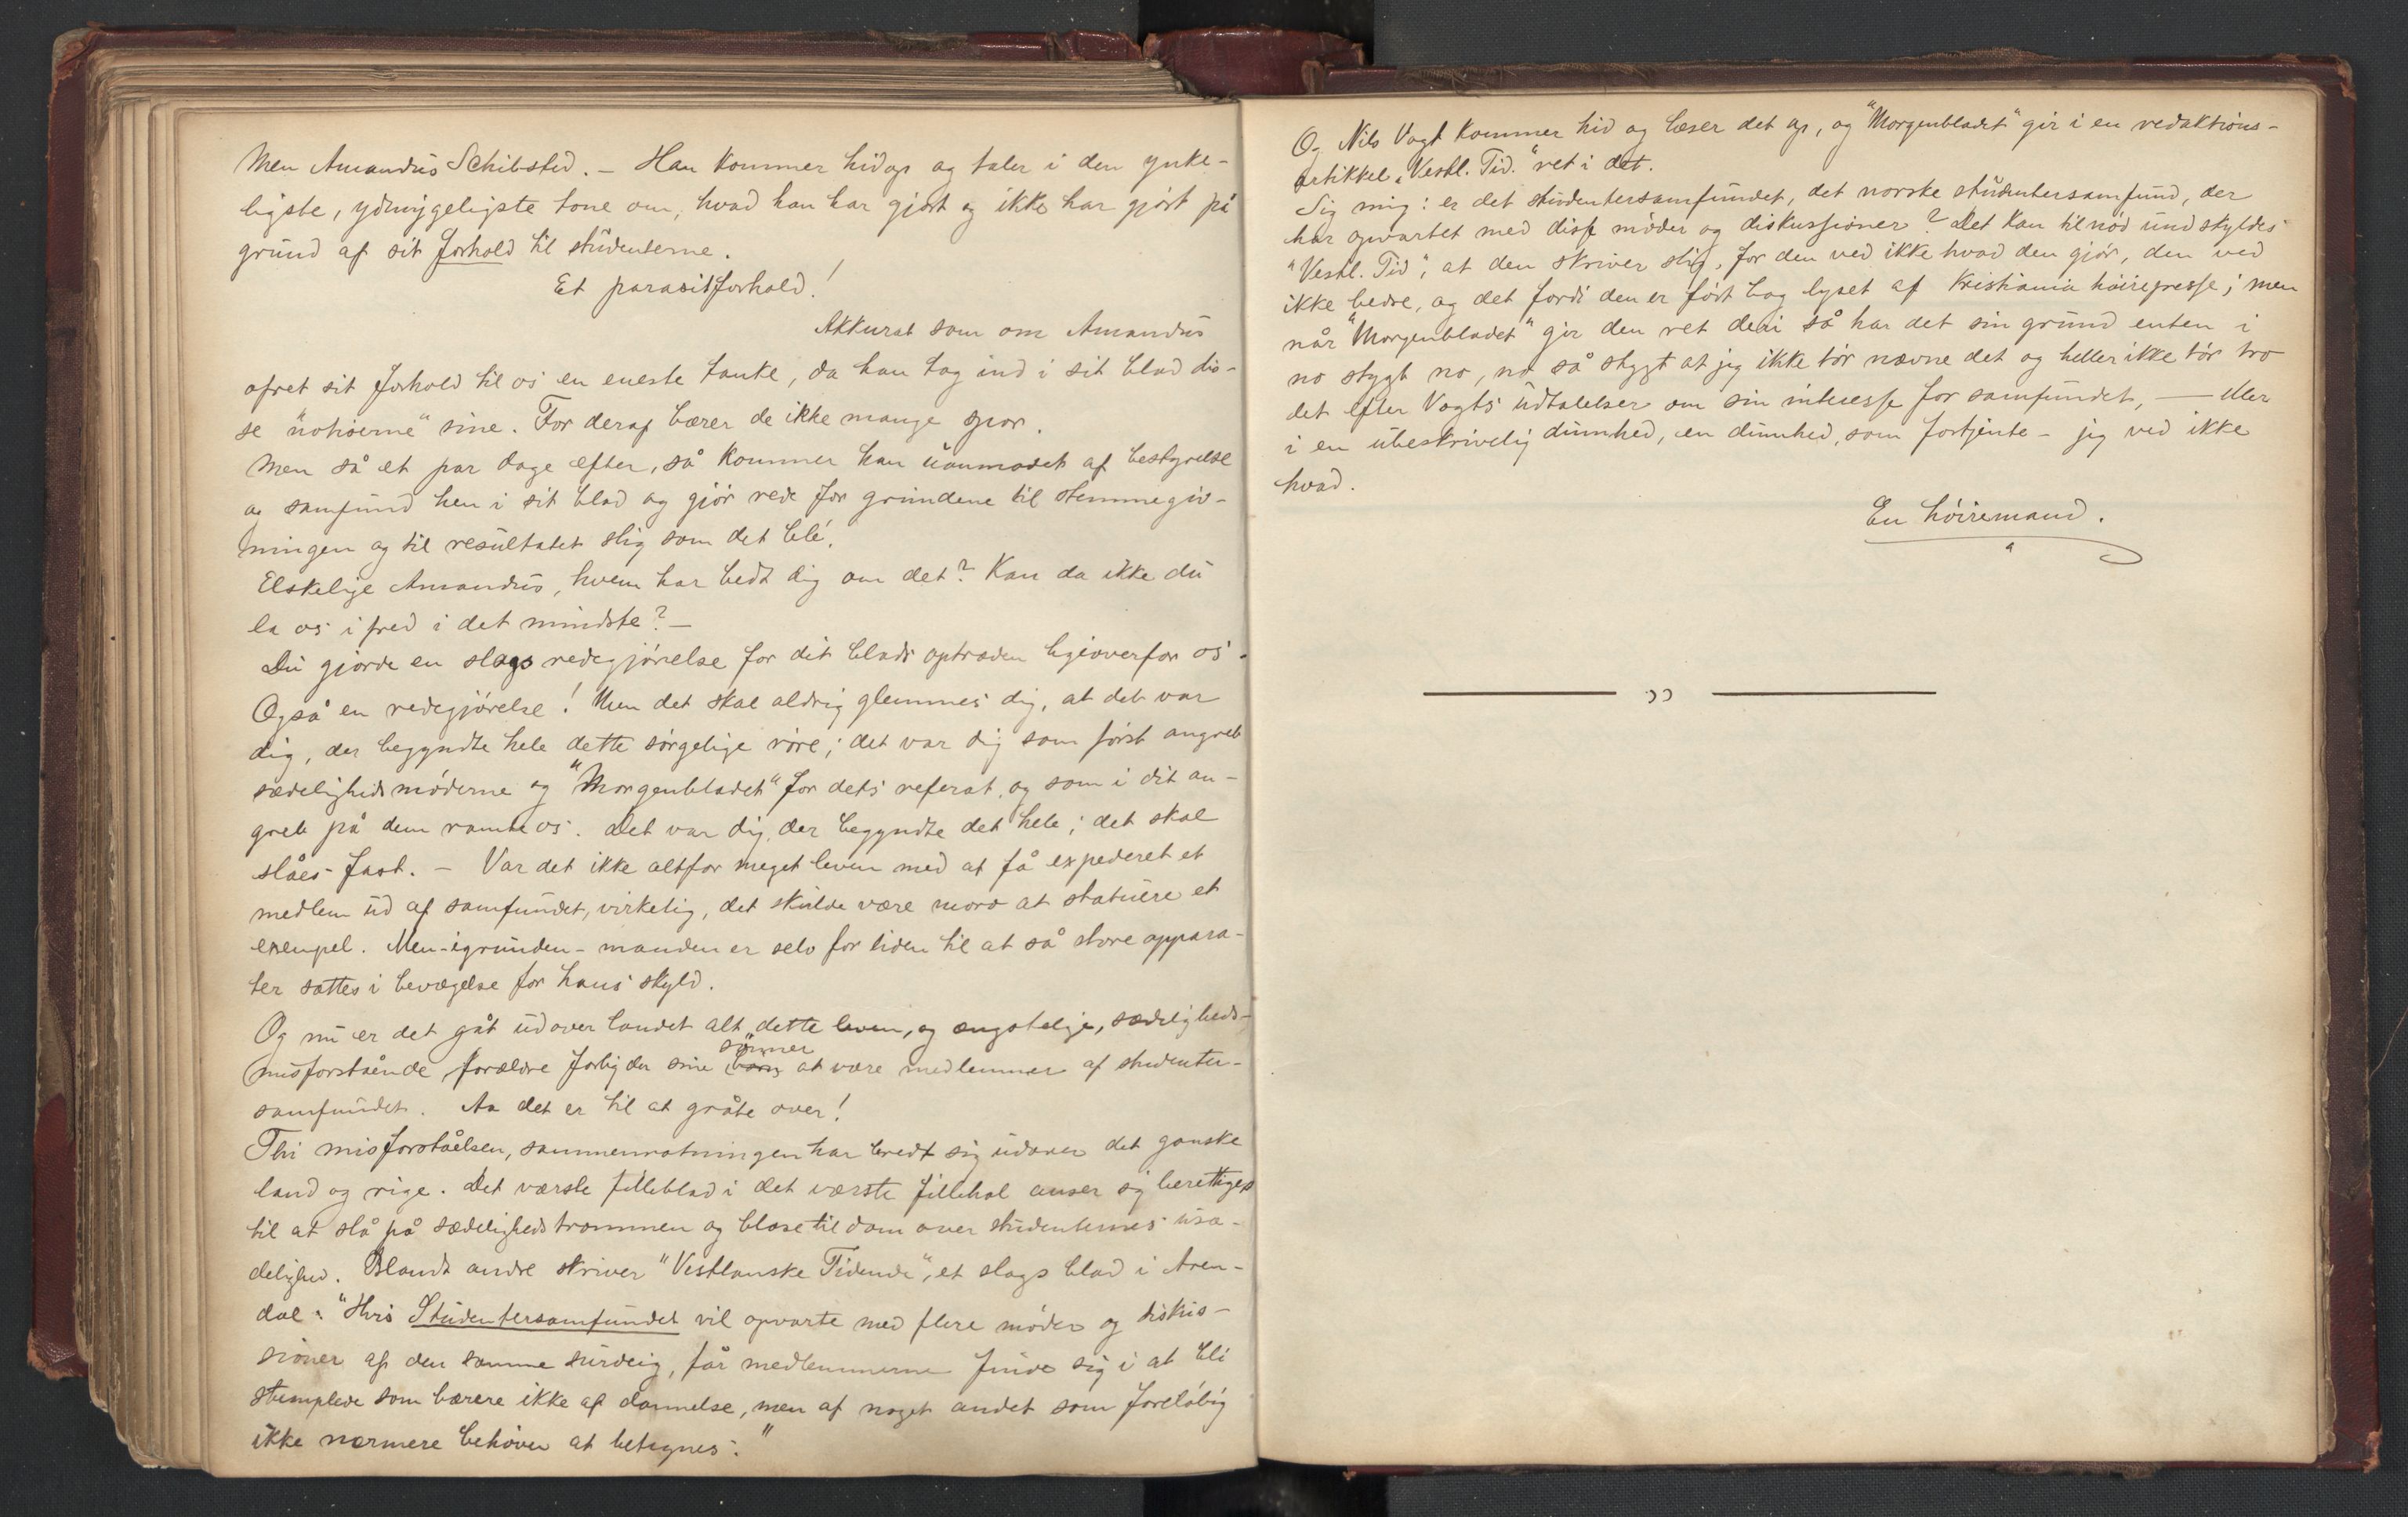 Men Amandus Schibsted. – Han kommer hidop og taler i den ynke-
ligste, ydmygeligste tone om, hvad han har gjort og ikke har gjort på
grund af sit forhold til studenterne.
Et parasitforhold!
Akkurat som om Amandus
ofret sit forhold til os en eneste tanke, da han tog ind i sit blad dis-
se "notiserne" sine. For deraf bærer de ikke mange spor.
Men så et par dage efter, så kommer han uanmodet af bestyrelse
og samfund hen i sit blad og gjör rede for grundene til stemmegiv-
ningen og til resultatet slig som det blé.
Elskelige Amandus, hvem har bedt dig om det? Kan da ikke du
la os i fred i det mindste? –
Du gjorde en slags redegjörelse for dit blads optræden ligeoverfor os.
Også en redegjörelse! Men det skal aldrig glemmes dig, at det var
dig, der begyndte hele dette sörgelige röre; det var dig som först angreb
sædelighedsmöderne og "Morgenbladet" for dets referat, og som i dit an-
greb på dem ramte os. Det var dig, der begyndte det hele; det skal
slåes fast. – Var det ikke altfor meget leven med at få expederet et
medlem ud af samfundet, virkelig, det skulde være moro at statuere et
exempel. Men – igrunden – manden er selv for liden til at så store appara-
ter sættes i bevægelse for hans skyld.
Og nu er det gåt udover landet alt dette leven, og ængstelige, sædeligheds-
misforstående forældre forbyder sine börn sönner at være medlemmer af studenter-
samfundet. Aa det er til at gråte over!
Thi misforståelsen, sammenrotningen har bredt sig udover det ganske
land og rige. Det værste filleblad i det værste fillehol anser sig berettiget
til at slå på sædelighedstrommen og blæse til dom over studenternes usæ-
delighed. Blandt andre skriver "Vestlanske Tidende", et slags blad i Aren-
dal: "Hvis Studentersamfundet vil opvarte med flere möder og diskus-
sioner af den samme surdeig, får medlemmerne finde sig i at bli
stemplede som bærere ikke af dannelse, men af noget andet som forelöbig
ikke nærmere behöver at betegnes."
Og Nils Vogt kommer hid og læser det op, og "Morgenbladet" gir i en redaktions-
artikkel "Vestl. Tid." ret i det.
Sig mig: er det studentersamfundet, det norske studentersamfund, der
har opvartet med disse möder og diskussioner? Det kan til nöd undskyldes
"Vestl. Tid", at den skriver slig, for den ved ikke hvad den gjör, den ved
ikke bedre, og det fordi den er fört bag lyset af Kristiania höirepresse; men
når "Morgenbladet" gir den ret deri så har det sin grund enten i
no stygt no, no så stygt at jeg ikke tör nævne det og heller ikke tör tro
det efter Vogts udtalelser om sin interesse for samfundet, – eller
i en ubeskrivelig dumhed, en dumhed, som fortjente – jeg ved ikke
hvad.
En höiremand.